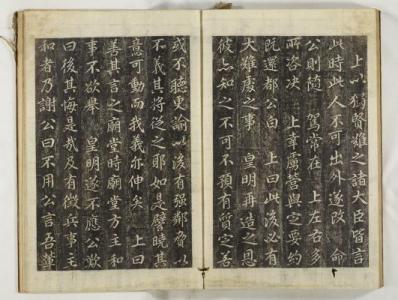 上以獨賢難之諸大臣皆言
此時此人不可出外遂改 命
公則隨 駕常在 上左右多
所咨決 上幸虜營與定要約
既還都公白 上曰此後必有
大難處之事 皇明再造之恩
彼亦知之不可不預有質定善
或不聽更論以後有强鄰脅以
不義其將從之耶如是譬曉其
意可動而我義亦伸矣 上曰
善其言之廟堂時廟堂方主和
事不欲舉 皇明遂不應公歎
曰後其悔是哉及有徵兵事主
和者乃謝公曰不用公言吾輩